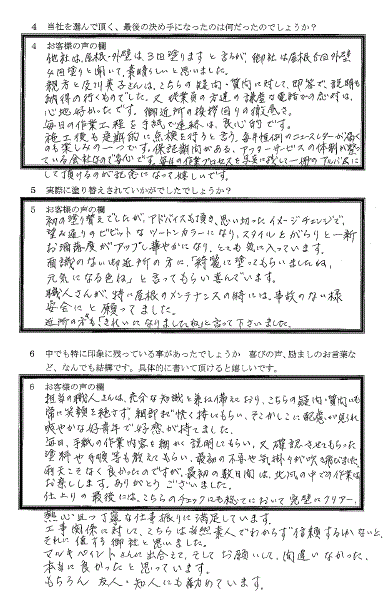 4 当社を選んで頂く、最後の決め手になったのは何だったのでしょうか？
4 お客様の声の欄
他社は、屋根・外壁は3回塗りますと言うが、御社は屋根5回外壁
4回塗りと聞いて、素晴らしいと思いました。
親方と及川美子さんは、こちらの疑問・質問に対して、即答で、説明も
納得の行くものでした。又従業員の方達の謙虚な電話での応対は、
心地好かったです。御近所の挨拶回りの徹底さ。
毎日の作業工程を手紙で連絡は、良心的です。
施工後も定期的に点検を行うと言う。毎月恒例のニュースレターが届く
のも楽しみの一つです。保証期間がある、アフターサービスの体制が整っ
ている会社なので安心です。毎日の作業プロセスを写真に残して一冊のアルバムに
して頂けるのが記念になって嬉しいです。
5 実際に塗り替えされていかがでしたでしょうか？
5 お客様の声の欄
初の塗り替えでしたが、アドバイスも頂き、思い切ったイメージチェンジで、
望み通りのビビットなツートンカラーになり、スタイルもがらりと一新
お洒落度がアップし華やかになり、とても気に入っています。
面識のない御近所の方に、「綺麗に塗ってもらいましたね、
元気になる色ね」と言ってもらい喜んでいます。
職人さんが、特に屋根のメンテナンスの時には、事故のない様
安全にと願ってました。
近所の方も「きれいになりましたね」と言って下さいました。
6 中でも特に印象に残っている事があったでしょうか 喜びの声、励ましのお言葉な
ど、なんでも結構です。具体的に書いて頂けると嬉しいです。
6 お客様の声の欄
担当の職人さんは、充分な知識と業に備えており、こちらの疑問・質問にも
常に笑顔を絶さず、細部まで快く接してもらい、そこかしこに配慮が見られ
爽やかな好青年で好感が持てました。
毎日、手紙の作業内容を細かに説明してもらい、又確認させてもらった
塗料や手順等も教えてもらい、最初の不安も気掛りが吹き飛びました。
雨天こそなく良かったのですが、最初の数日間は、北風の中での作業は
お寒しします。ありがとうございました。
仕上りの最後には、こちらのチェックにも総てにおいて完璧にクリアー、
熱心且つ丁寧な仕事振りに満足しています。
工事関係に対して、こちらは当然素人でわからず信頼するしかないと、
それに値する御社と思いました。
マルキペイントさんに出合えて、そしてお願いして、間違いなかった、
本当に良かったと思っています。
もちろん 友人・知人にも勧めています。